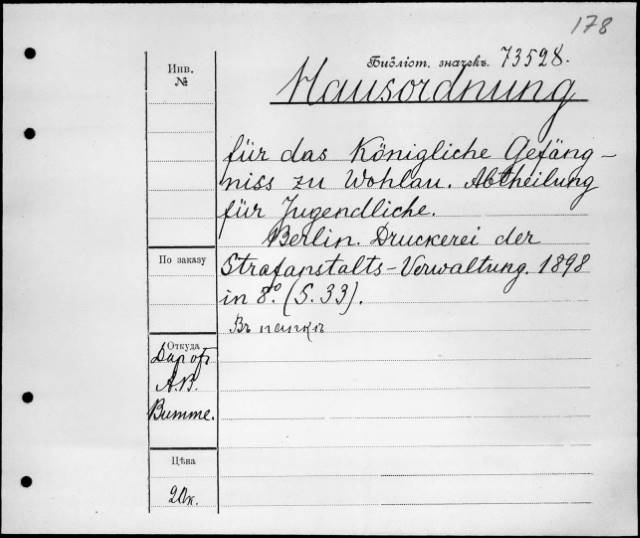 178
Библіот. значекъ. 73528.
Инв.
№
Hausordnung
für das Königliche Gefäng-
niss zu Wohlau. Abtheilung
für Jugendliche.
Berlin. Druckerei der
По заказу
Strafanstalts-Verwaltung. 1898
in 8º. (S. 33).
Въ папкѣ
Откуда
Даръ
А.В.
Витте.
Цѣна
20к.